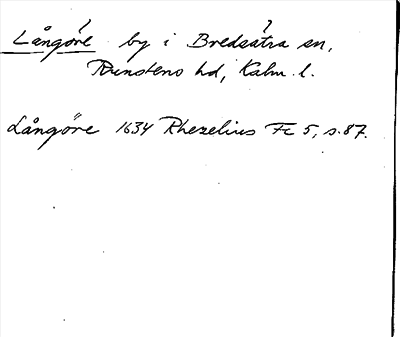 Långöre by i Bredsätra sn,
Runstens hd, Kalm. l.
Långöre 1634 Rhezelius Fc 5, s. 87.